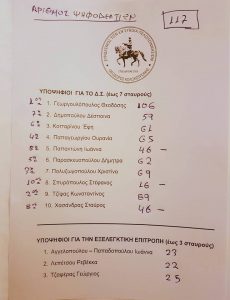 ΑΡΙΘΜΟΣ ΨΗΦΟΔΕΛΤΙΩΝ 117
ΥΠΟΨΗΦΙΟΙ ΓΙΑ ΤΟ Δ.Σ. (έως 7 σταυρούς)
1. Γεωργουλόπουλος Θεοδόσης 106
2. Δημοπούλου Δέσποινα 59
3. Κοιταρίνου Έφη 61
4. Παπαγεωργίου Ουρανία 65
5. Παπαντώνη Ιωάννα 46 —
6. Παρασκευοπούλου Δήμητρα 62
7. Πολυζωγοπούλου Χριστίνα 69
8. Σπυρόπουλος Στέφανος 16 —
9. Τζίφας Κωνσταντίνος 89
10. Χασάνδρας Σταύρος 46 —
ΥΠΟΨΗΦΙΟΙ ΓΙΑ ΤΗΝ ΕΞΕΛΕΓΚΤΙΚΗ ΕΠΙΤΡΟΠΗ (έως 3 σταυρούς)
1. Αγγελοπούλου – Παπαδοπούλου Ιωάννα 23
2. Λεπέτσου Ρεβέκκα 22
3. Τζαφέρας Γεώργιος 25